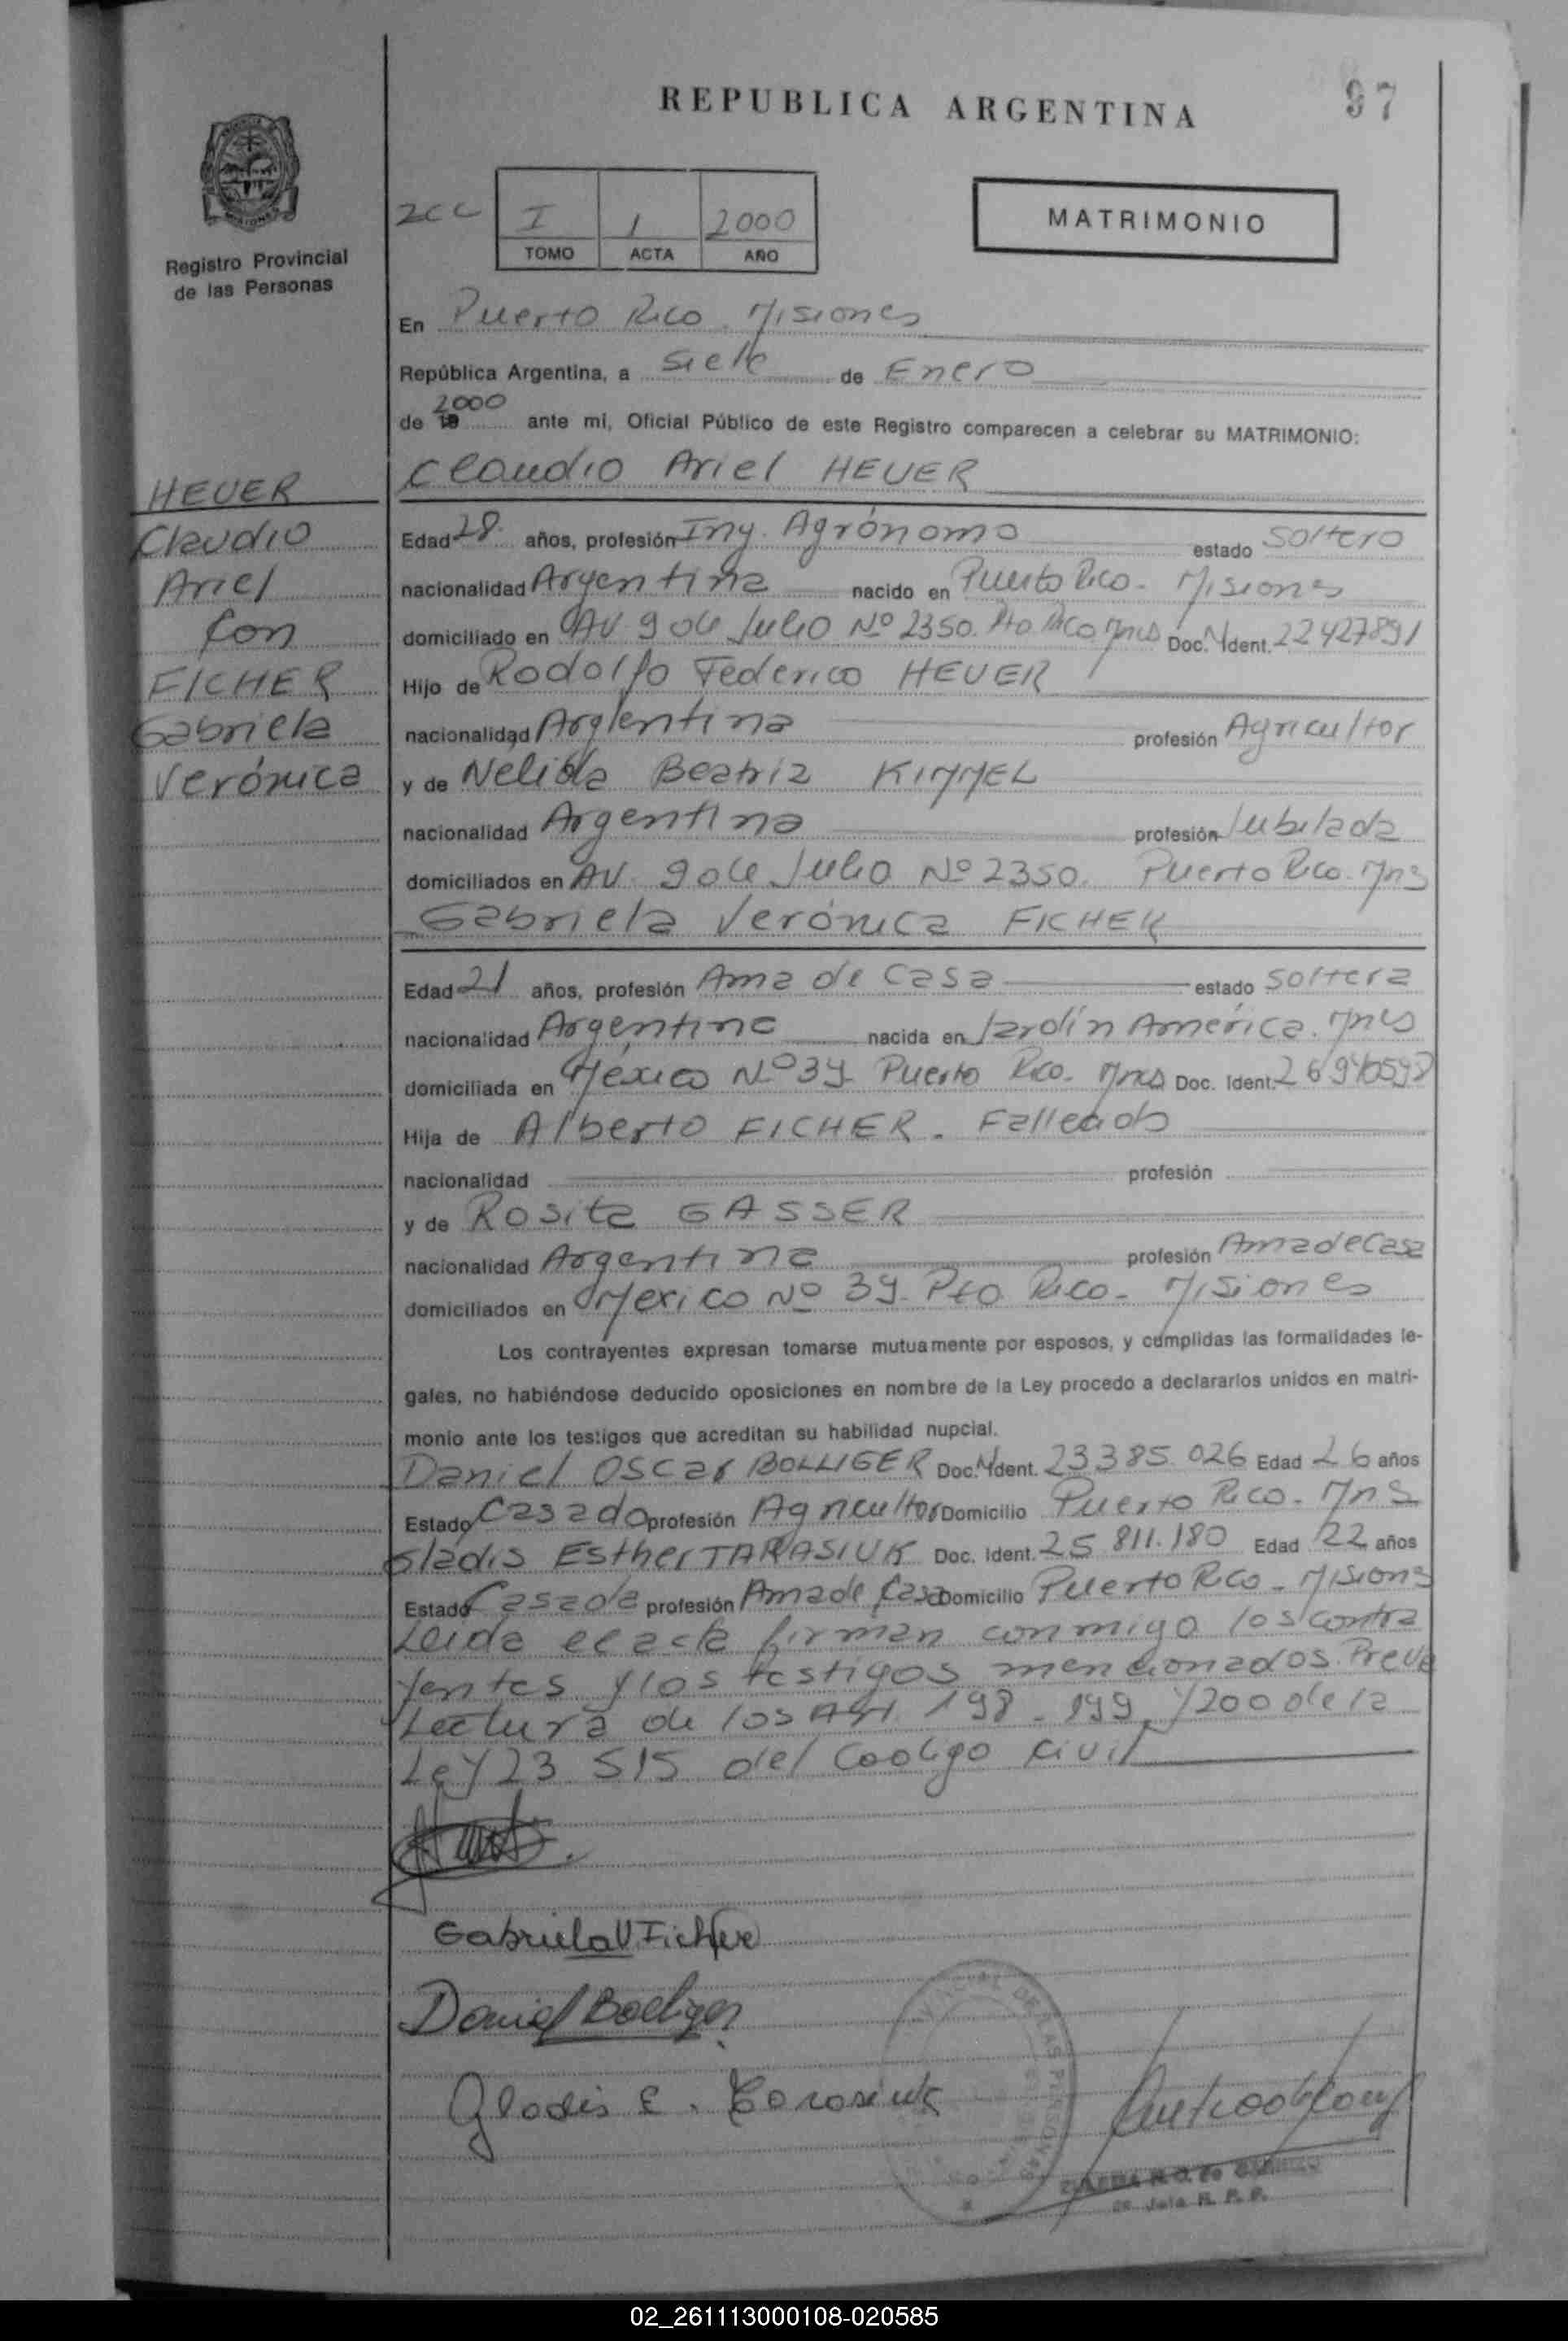 REPUBLICA ARGENTINA
97
Registro Provincial
de las Personas
2CC I 1 2000
TOMO ACTA AÑO
MATRIMONIO
En Puerto Rico. Misiones
República Argentina, a Siete de Enero
de 19 2000 ante mi, Oficial Público de este Registro comparecen a celebrar su MATRIMONIO:
Claudio Ariel HEUER
HEUER
Claudio
Ariel
Con
FICHER
Gabriela
Verónica
Edad 28. años, profesión Ing. Agrónomo estado Soltero
nacionalidad Argentina nacido en Puerto Rico. Misiones
domiciliado en AV 9 de Julio Nº 2350. Pto Rico Mnes Doc. N Ident. 22427891
Hijo de Rodolfo Federico HEUER
nacionalidad Argentina profesión Agricultor
y de Nelida Beatriz KIMMEL
nacionalidad Argentina profesión Jubilada
domiciliados en AV. 9 de Julio Nº 2350. Puerto Rico. Mns
Gabriela Verónica FICHER
Edad 21 años, profesión Ama de Casa estado Soltera
nacionalidad Argentina nacida en Jardín América. Mnes
domiciliada en México Nº 39 Puerto Rico. Mnes Doc. Ident.
Hija de Alberto FICHER. Fallecido
nacionalidad profesión
y de Rosita GASSER
nacionalidad Argentina profesión Ama de Casa
domiciliados en Mexico Nº 39. Pto Rico. Misiones
Los contrayentes expresan tomarse mutuamente por esposos, y cumplidas las formalidades le-
gales, no habiéndose deducido oposiciones en nombre de la Ley procedo a declararlos unidos en matri-
monio ante los testigos que acreditan su habilidad nupcial.
Daniel Oscar BOLLIGER Doc. N Ident. 23385.026 Edad 26 años
Estado Casado profesión Agricultor Domicilio Puerto Rico. Mns
Gladis Esther TARASIUK Doc. Ident. 25 811.180 Edad 22 años
Estado Casada profesión Ama de Casa Domicilio Puerto Rico. Misions
Leida el acta firman conmigo los contra
yentes y los testigos mencionados. Previa
Lectura de los Art. 198 - 199 y 200 de la
Ley 23 515 del Codigo Civil
Gabriela V Ficher
Daniel Bolliger
Gladis E. Tarasiuk
2º Jefa R. P. P.
02_261113000108-020585